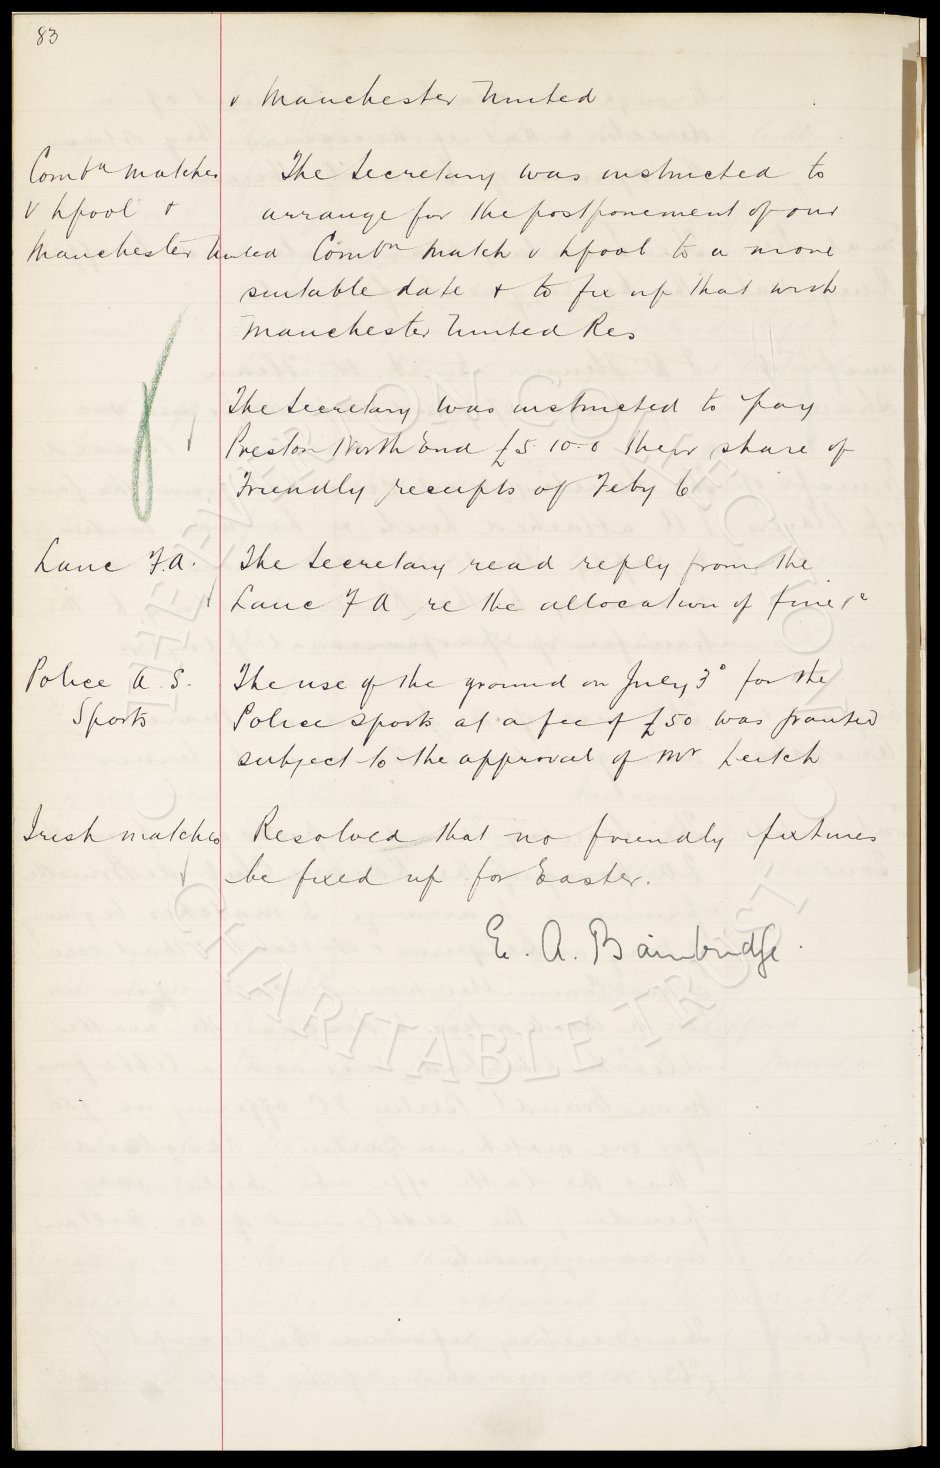 83
v Manchester United
Combn matches
v Lpool &
Manchester United
The Secretary was instructed to
arrange for the postponement of our
Combn match v Lpool to a more
suitable date & to fix up that with
Manchester United Res
The Secretary was instructed to pay
Preston North End £5.10.0 their share of
Friendly receipts of Feby 6
Lanc F.A.
The Secretary read reply from the
Lanc F A re the allocation of fines
Police A. S.
Sports
The use of the ground on July 3 for the
Police Sports at a fee of £50 was granted
subject to the approval of Mr Leitch
Irish matches
Resolved that no friendly fixtures
be fixed up for Easter.
E. A. Bainbridge.
THE EVERTON COLLECTION
CHARITABLE TRUST